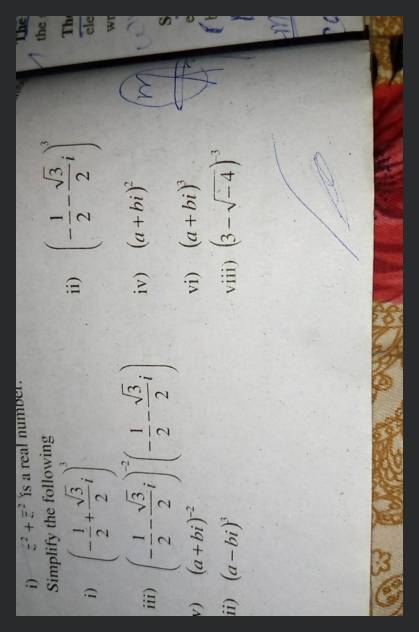 i) z̄² + z̄⁻² is a real number.
Simplify the following
i) (-1/2 + √3/2 i)³
ii) (-1/2 - √3/2 i)³
iii) (-1/2 - √3/2 i)⁻² (-1/2 - √3/2 i)
iv) (a + bi)²
v) (a + bi)⁻²
vi) (a + bi)³
ii) (a - bi)³
viii) (3 - √-4)⁻³
The
the
The
ele
wr
m